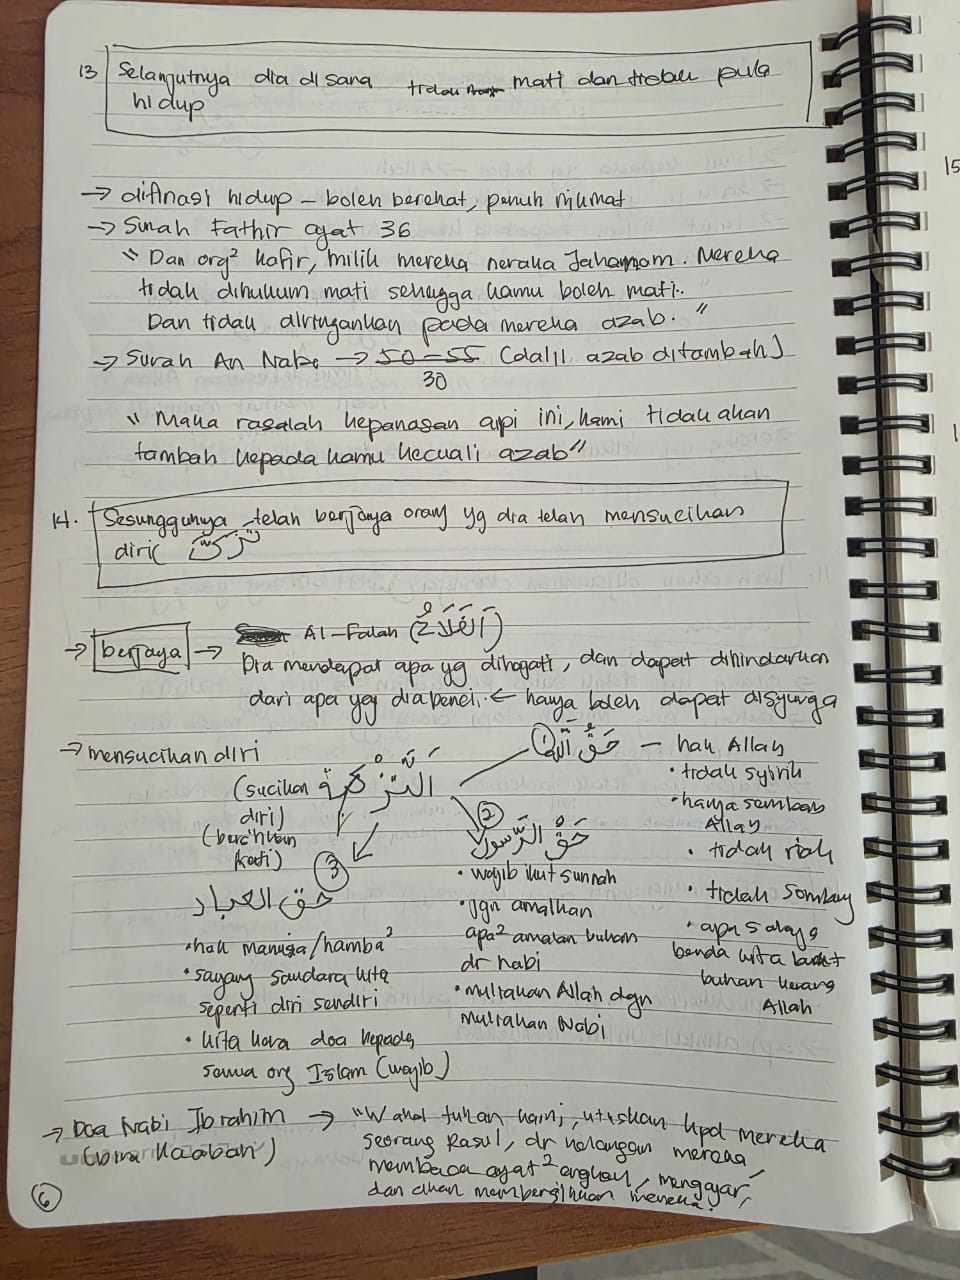 13 Selanjutnya dia di sana tidak mati dan tidak pula
hidup
→ difinasi hidup – boleh berehat, penuh nikmat
→ Surah Fathir ayat 36
" Dan org² kafir, milik mereka neraka Jahannam. Mereka
tidak dihukum mati sehingga kamu boleh mati.
Dan tidak diringankan pada mereka azab. "
→ Surah An Naba → 50–55 (dalil azab ditambah)
30
" Maka rasalah kepanasan api ini, kami tidak akan
tambah kepada kamu kecuali azab"
14. Sesunggunya telah berjaya orang yg dia telah mensucikan
diri ( تزكى
→ berjaya → Al-Falah (اَلْفَلَاحُ)
Dia mendapat apa yg dihajati, dan dapat dihindarkan
dari apa yg dia benci. ← hanya boleh dapat disyurga
→ mensucikan diri
اَلتَّزْكِيَة
(sucikan
diri)
(bersihkan
hati)
① حَقُّ الله – hak Allah
• tidak syirik
• hanya sembah
Allah
• tidak riak
• tidak sombong
• apa salahnya
benda kita buat
bukan kerana
Allah
② حَقُّ الرَّسول
• wajib ikut sunnah
• jgn amalkan
apa² amalan bukan
dr nabi
• muliakan Allah dgn
muliakan Nabi
③ حق العباد
• hak manusia/hamba²
• sayang saudara kita
seperti diri sendiri
• kita kena doa kepada
semua org Islam (wajib)
→ Doa Nabi Ibrahim → "Wahai tuhan kami, utuskan kpd mereka
(bina Kaabah) seorang Rasul, dr kalangan mereka
membaca ayat² engkau, mengajar,
dan akan membersihkan mereka."
6
15